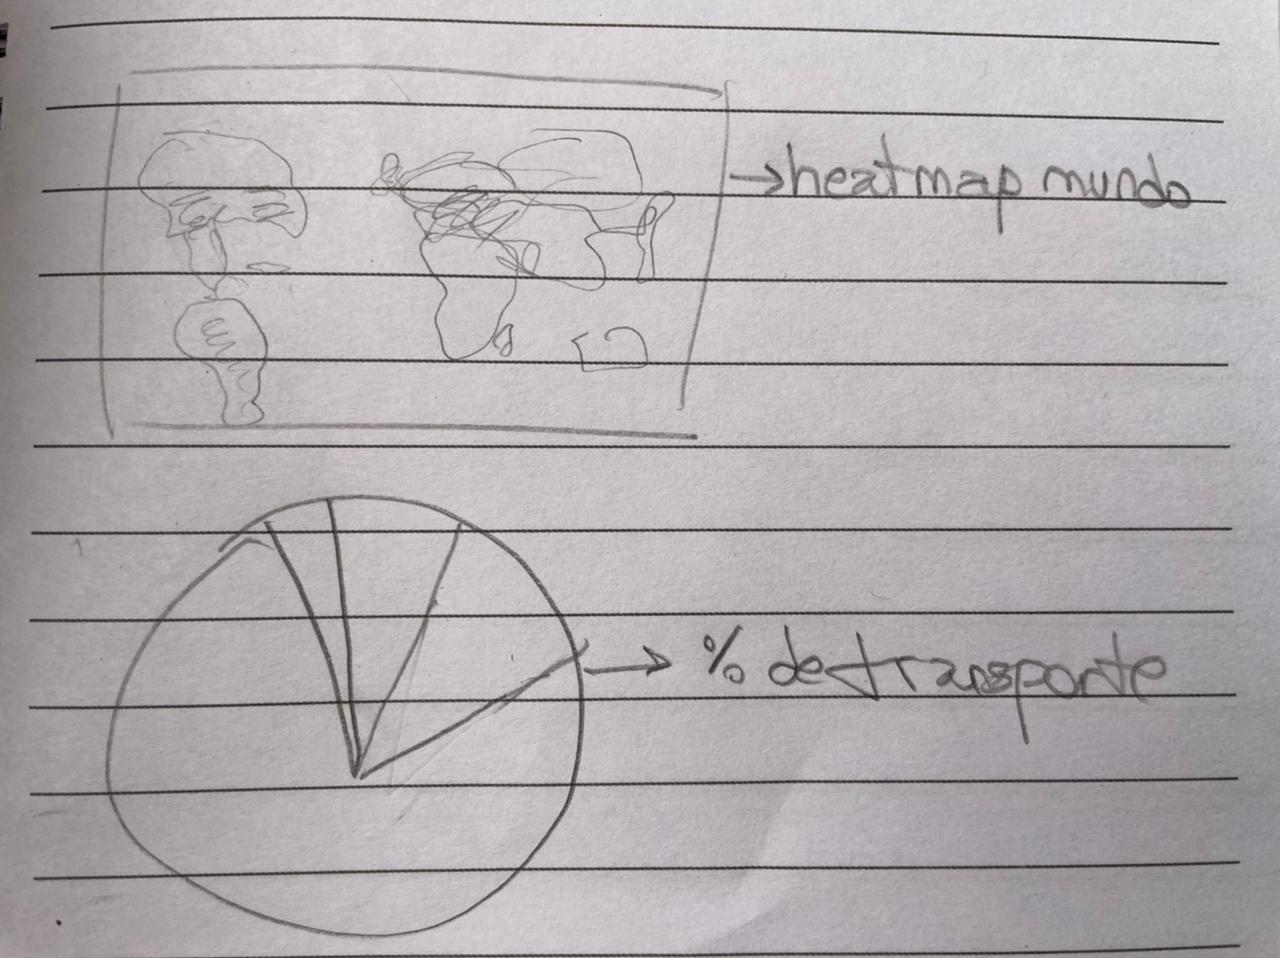 → heatmap mundo
→ % de transporte